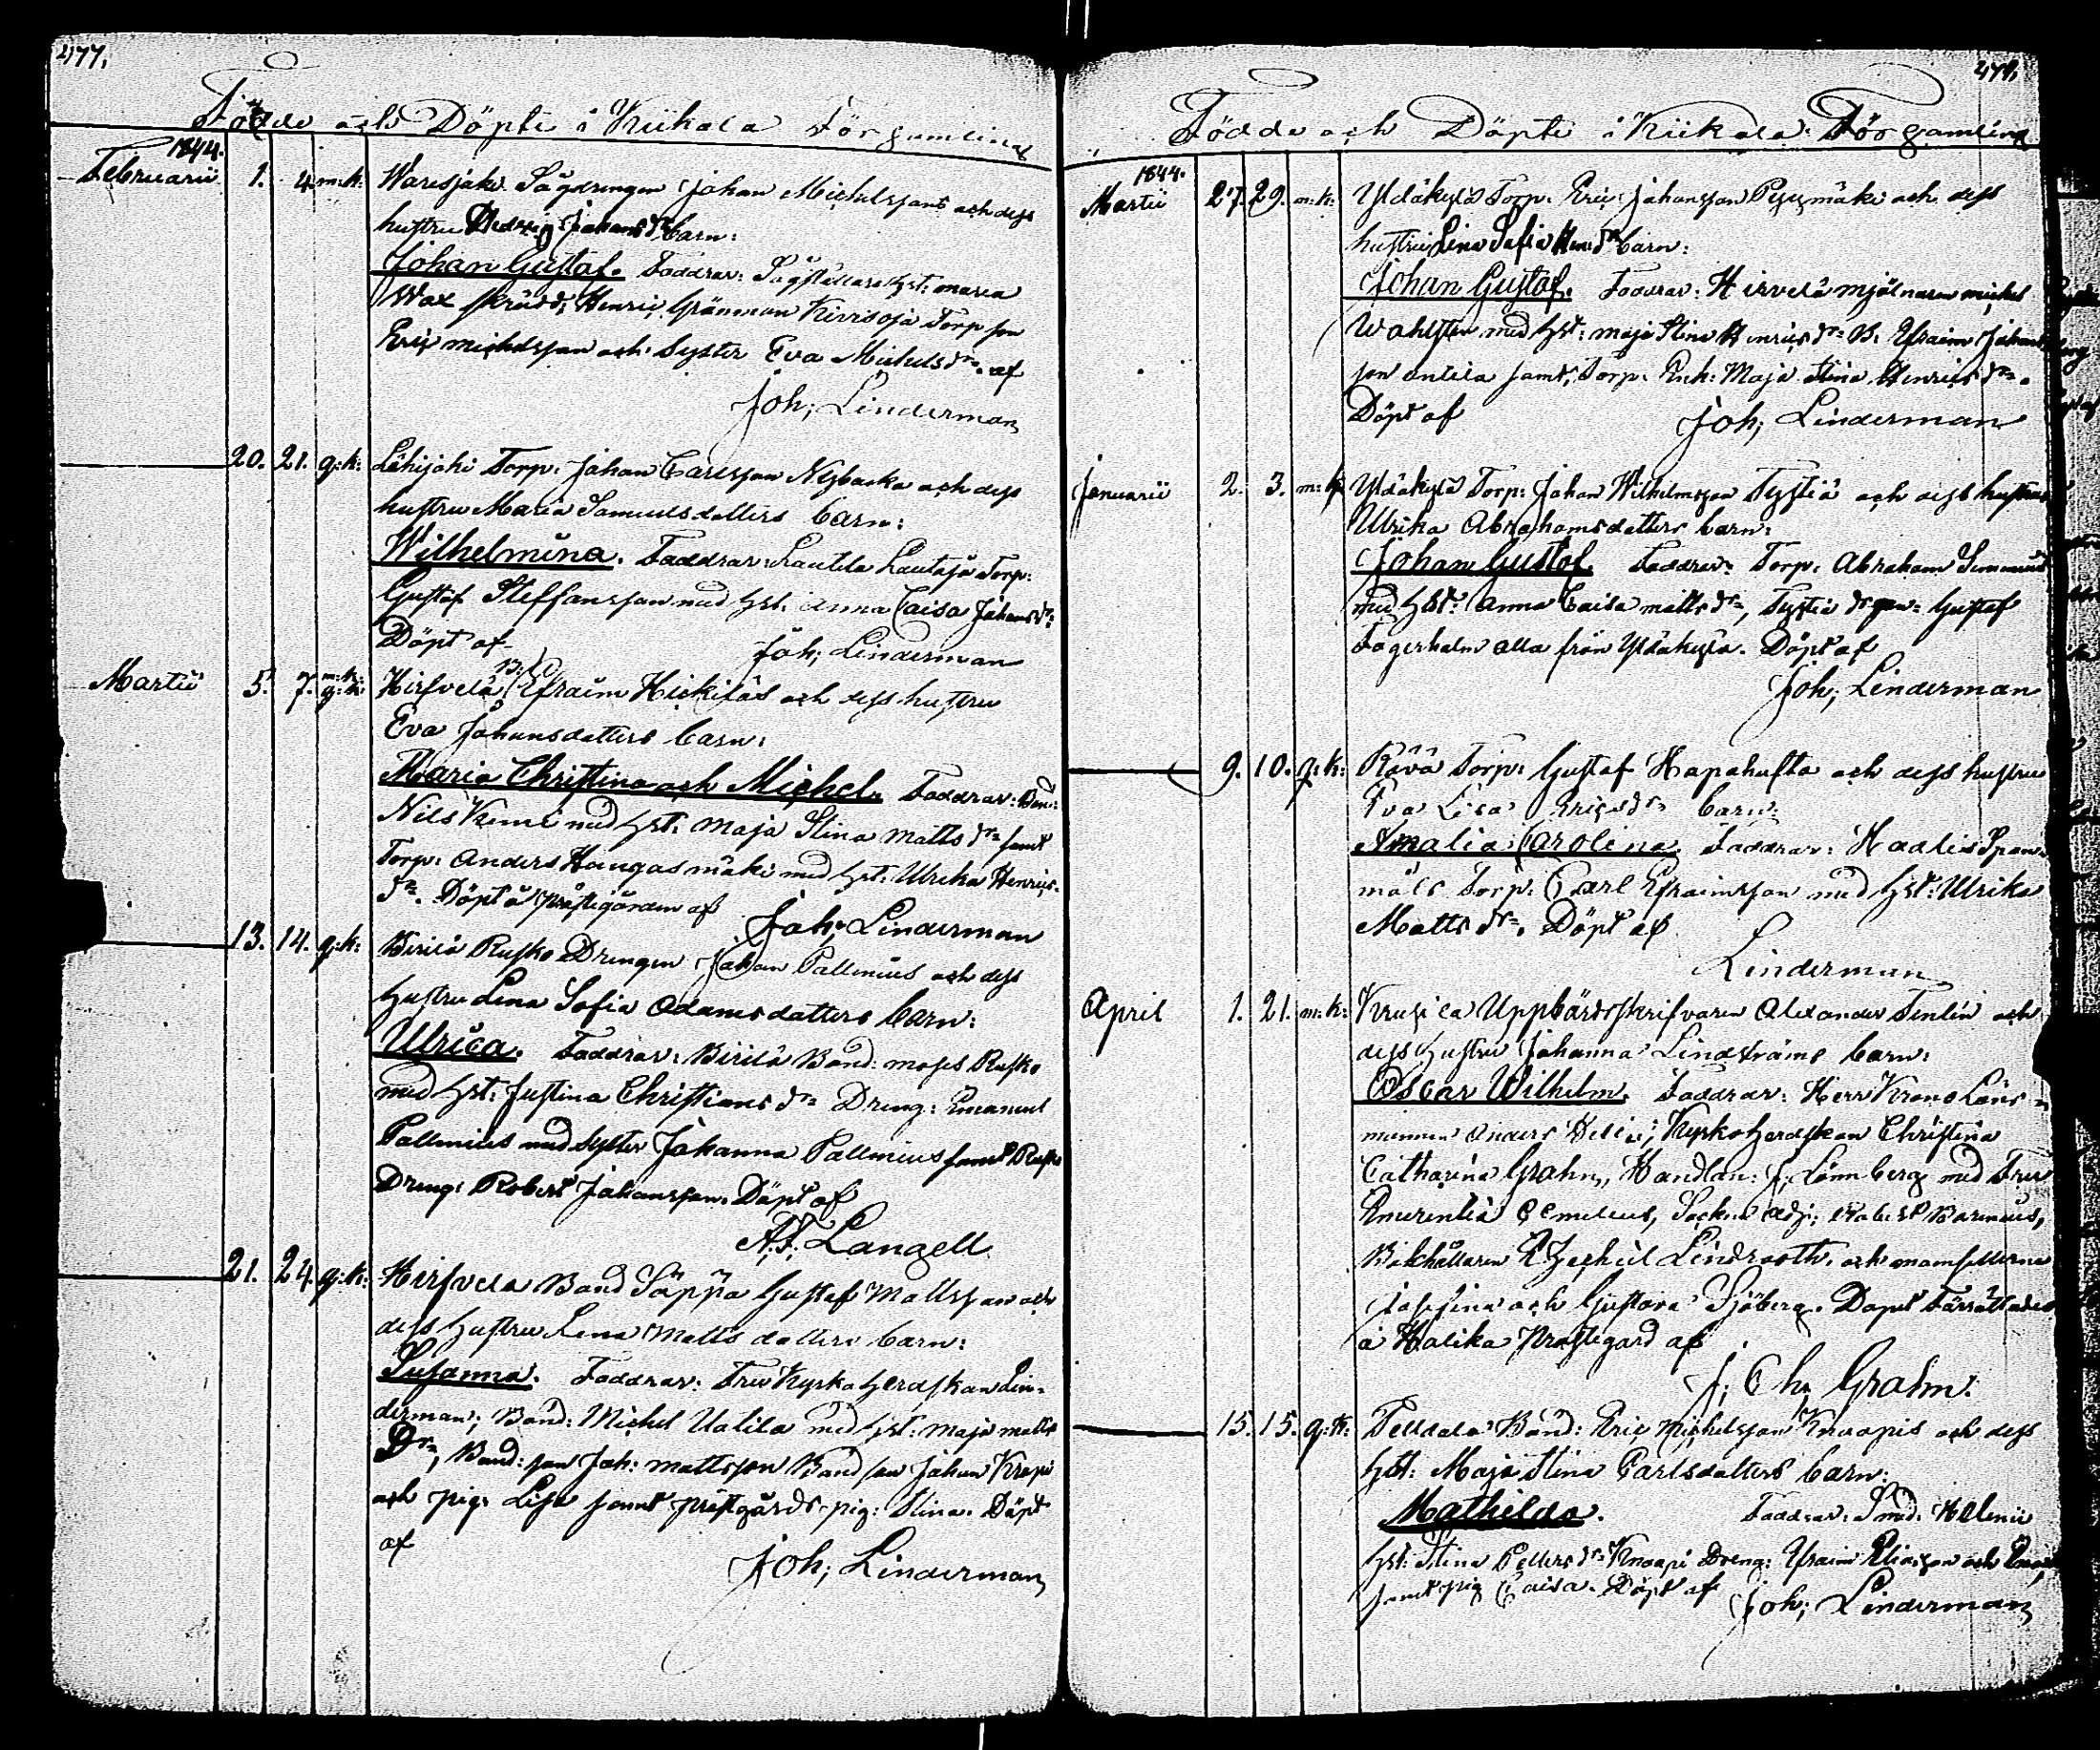 477.
Födde och Döpte i Kiikala Församling
1844.
Februarii 1. 4. m:k: Waresjoki Sågdrengen Johan Michelsson och dess
hustru Hedvig Johans dr barn:
Johan Gustaf. Faddrar: Sågställare hst: Maria
Wax skrädd: Henric Grönman Kirrsoja Torp son
Eric Michelsson och Syster Eva Michels dr. af
Joh; Linderman
20. 21. q:k: Lähijoki Torp: Johan Carlsson Nybacka och dess
hustru Maria Samuelsdotters barn:
Wilhelmina. Faddrar: Lautela Lautoja Torp:
Gustaf Steffansson med hst: Anna Caisa Johans dr:
Döpt af Joh; Linderman
Martii 5. 7. m:k: q:k: Hirsvelä B: Efraim Heikiläs och dess hustru
Eva Johansdotters barn:
Maria Christina och Michel. Faddrar: Bond:
Nils med hst: Maja Stina Matts dr samt
Torp: Anders Kangasmäki med hst: Ulrika Henrics
dr. Döpt å prästgården af Joh; Linderman
13. 14. q:k: Kirilä Rusko Drengen Johan Pallenius och dess
hustru Lena Sofia Adamsdotters barn:
Ulrica. Faddrar: Birilä Bond: Moses Rusko
med hst: Justina Christians dr Dreng: Emanuel
Pallenius med Syster Johanna Pallenius samt Rusko
Dreng: Robert Johansson. Döpt af
A. F. Langell
21. 24. q:k: Hirsvelä Bond Säppä Gustaf Mattsson och
dess hustru Lena Matts dotters barn:
Susanna. Faddrar: Fru Kyrkoherdskan Lin-
derman; Bond: Michel Uotila med hst: Maja Matts
Dr, Bond: son Joh: Mattsson Bond son Johan
och pig: Lisa samt prästgårds pig: Stina. Döpt
af
Joh; Linderman
478.
Födde och Döpte i Kiikala Församling
1844.
Martii 27. 29. m:k: Yldäkylä Torp: Eric Johansson Pyymäki och dess
hustru Lina Sofia Hen: dr barn:
Johan Gustaf. Faddrar: Hirvelä mjölnaren Michel
Wahlsten med hst: Maja Stina Henrics dr B: Efraim Johans
son Antila samt Torp: Enk: Maja Stina Henrics dr.
Döpt af Joh; Linderman
Januarii 2. 3. m:k: Yldäkylä Torp: Johan Wilhelmsson Tystiä och dess hustru
Ulrika Abrahamsdotters barn:
Johan Gustaf. Faddrar: Torp: Abraham
med hst: Anna Caisa Matts dr, Tystiä Gustaf
Fagerholm alla från Yldäkylä. Döpt af
Joh; Linderman
9. 10. q:k: Rävä Torp: Gustaf Hapahuhta och dess hustru
Eva Lisa Erics dr barn:
Amalia Carolina. Faddrar: Hadlis
Torp: Carl Efraimsson med hst: Ulrika
Matts dr. Döpt af
Linderman
April 1. 21. m:k: Kruusila Uppbördsskrifvaren Alexander Tenlén och
dess hustru Johanna Lindströms barn:
Oscar Wilhelm. Faddrar: Herr Krono Läns-
mannen Anders Kyrkoherdskan Christina
Catharina Grahn, Handlan: J: Lönnberg med Fru
Emerentia Sockn: Adj: Robert
Bokhållaren Ezechiel Lindrooth, och mamsellerna
Josefina och Gustava Sjöberg. Dopet Förrättades
å Halikko Prästgård af
J; Ch; Grahn.
15. 15. q:k: Bond: Eric Michelsson Knaapis och dess
hst: Maja Stina Carlsdotters barn:
Mathilda. Faddrar: Smed:
hst: Stina Petters dr: Knaapi Dreng: Efraim Eliasson och
samt pig Caisa. Döpt af Joh; Linderman